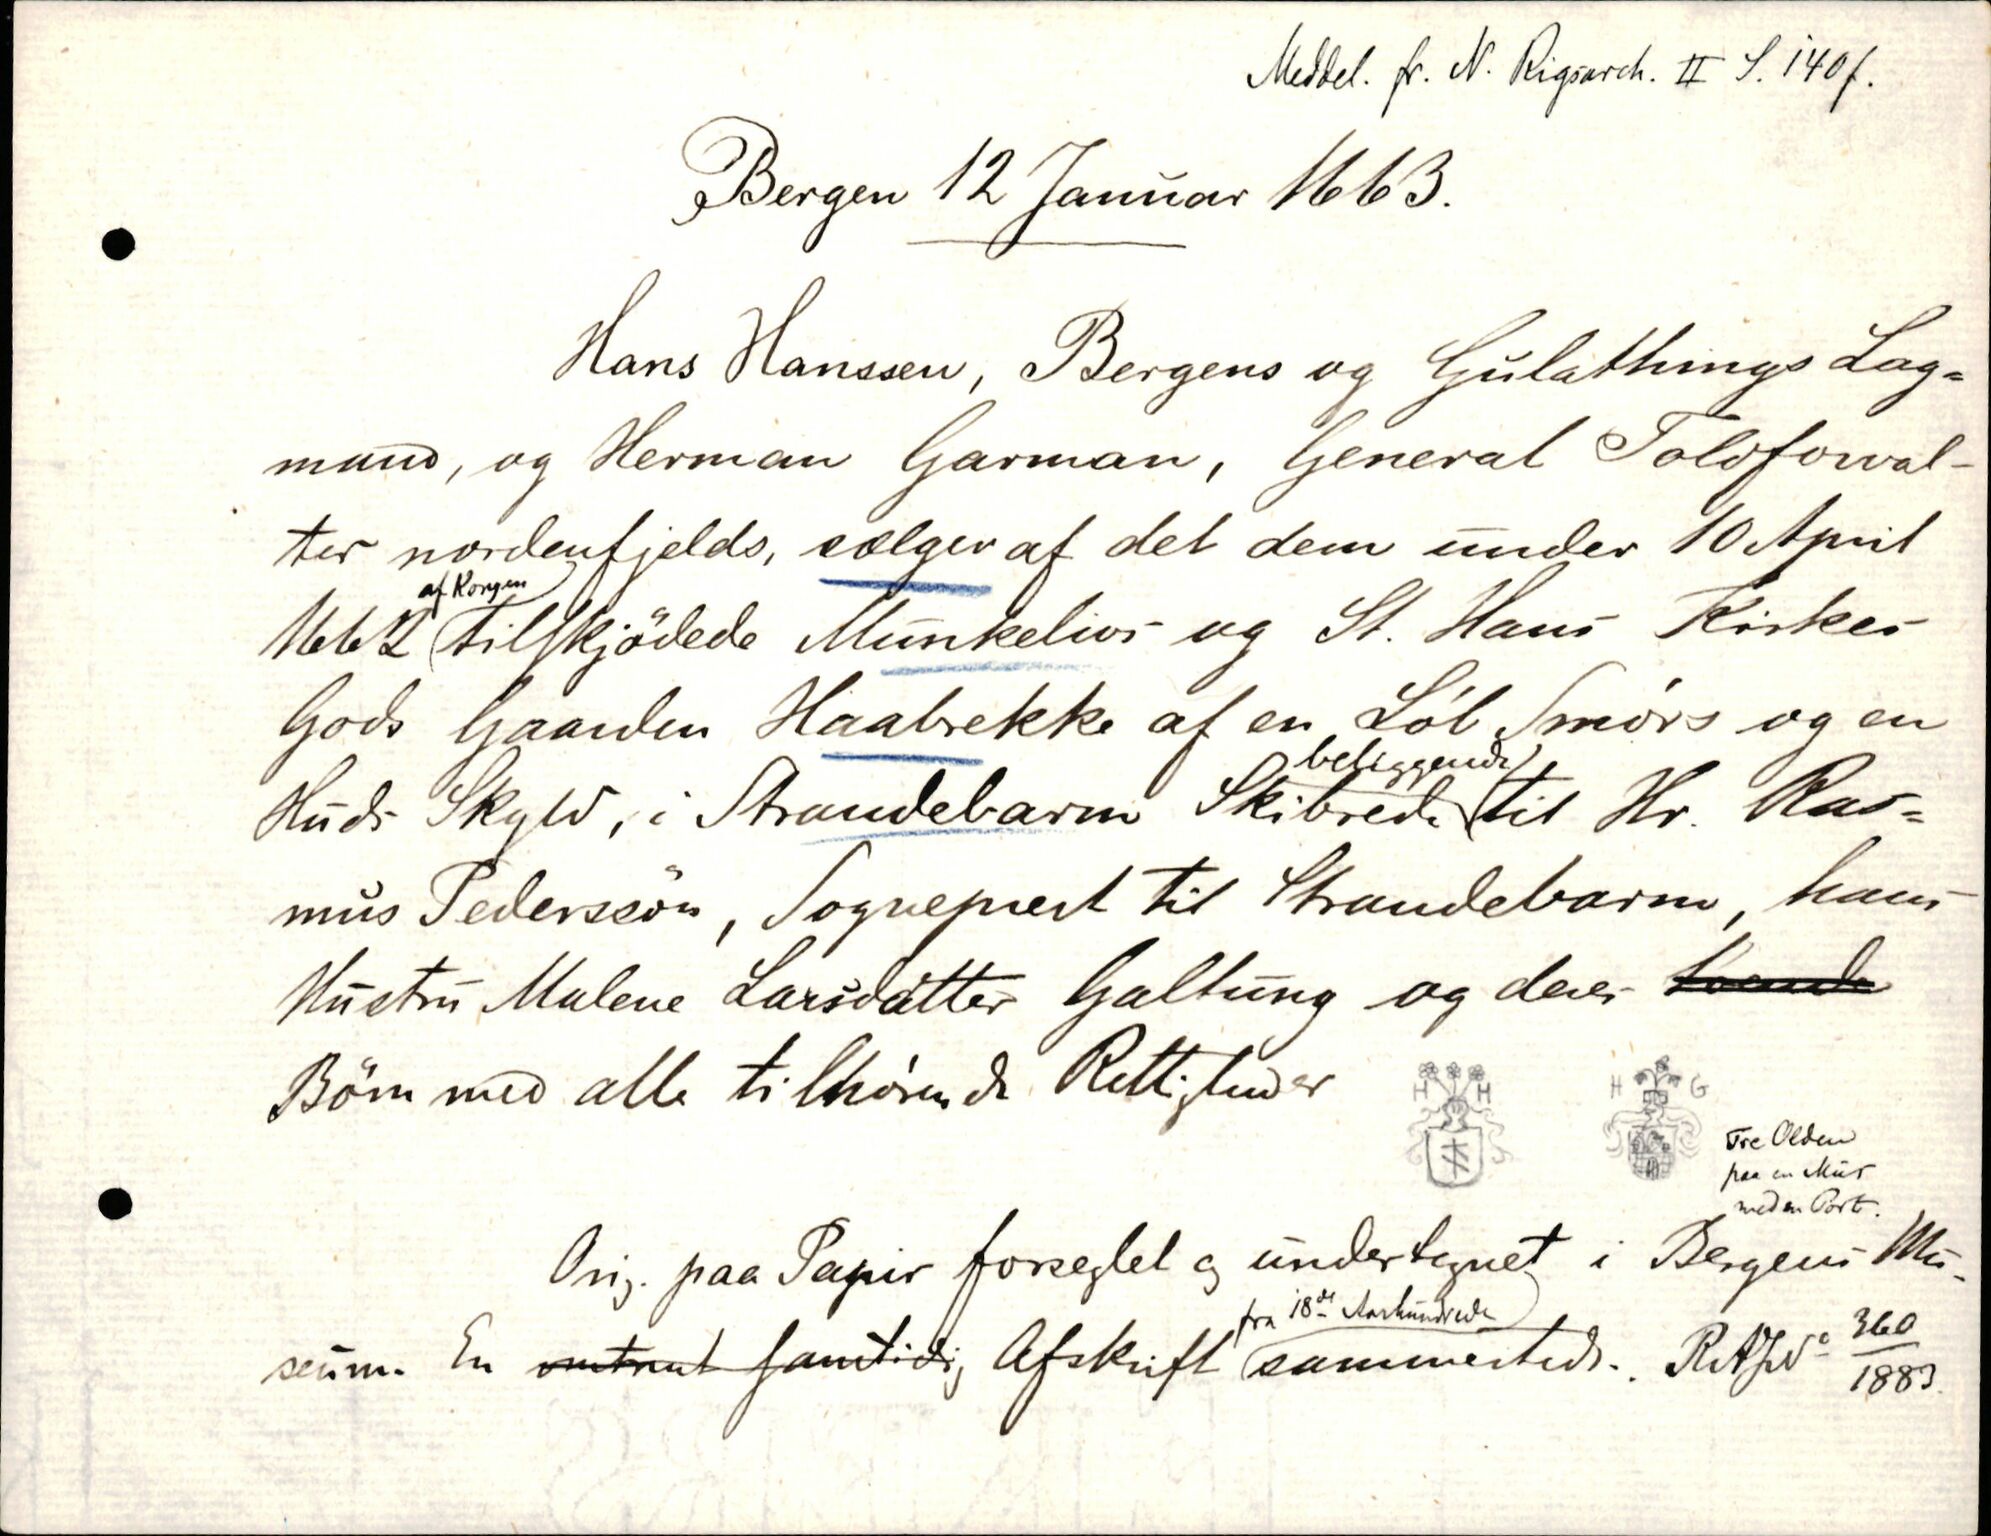 Meddel. fr. N. Rigsarch. II S. 140 f.
Bergen 12 Januar 1663.
Hans Hanssen, Bergens og Gulathings Lag=
mand, og Herman Garman, General Toldforval-
ter nordenfjelds, sælger af det dem under 10 April
af Kongen
1662 tilskjödede Munkelivs og St. Hans Kirkes
Gods Gaarden Haabrekke af en Löb Smörs og en
beliggende
Huds Skyld, i Strandebarm Skibrede til Hr. Ras=
mus Pederssön, Sogneprest til Strandebarm, hans
Hustru Malene Larsdatter Galtung og deres
Börn med alle tilhörende Rettigheder
H H
H G
Tre Olden
paa en Mur
med en Port.
Orig. paa Papir forseglet og undertegnet i Bergens Mu-
fra 18de Aarhundrede
seum. En omtrent samtidig Afskrift sammesteds. RA JNo 360
1883